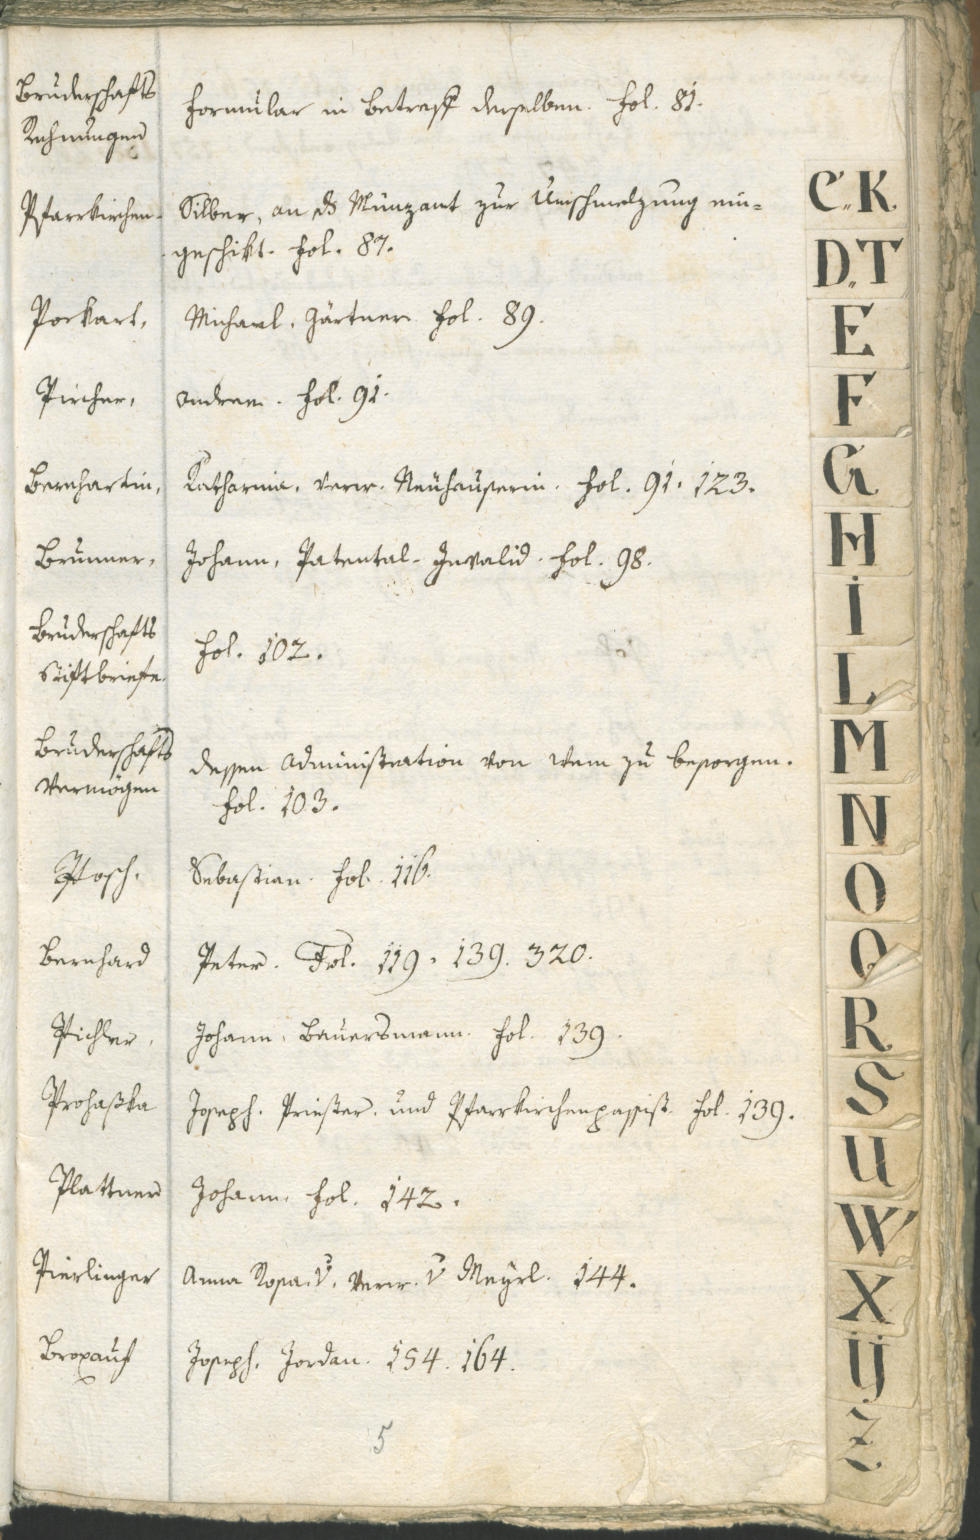 Bruderschafts
Rechnungen
Formular in Betreff derselben. fol. 81.
Pfarrkirchen-
Silber, an das Münzamt zur Umschmelzung ein=
geschikt. fol. 87.
Pockart,
Michael, Gärtner fol. 89.
Pircher,
Andreas. fol. 91.
Bernhartin,
Katharina, verw. Neuhauserin. fol. 91. 123.
Brunner,
Johann, Patental-Invalid. fol. 98.
Bruderschafts
Stiftbriefe.
fol. 102.
Bruderschafts
Vermögen
dessen Administration von wem zu besorgen.
fol. 103.
Posch.
Sebastian. fol. 116.
Bernhard
Peter. Fol. 119. 139. 320.
Pichler,
Johann, Bauersmann. fol. 139.
Prohaska
Joseph. Priester. und Pfarrkirchenpassist. fol. 139.
Plattner
Johann. fol. 142.
Pierlinger
Anna Rosa v. verw. v Meyrl. 144.
Broxauf
Joseph. Jordan. 154. 164.
5
C.K.
D.T
E
F
G
H
I
L
M
N
O
Q
R
S
U
W
X
Y
Z